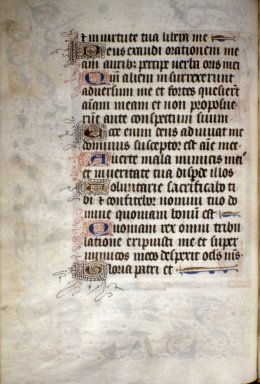 et in virtute tua libera me
Deus exaudi orationem me
am auribz percipe verba oris mei
Qm̄ alieni insurrexerunt
adversum me et fortes quesierūt
aīam meam et non proposue
rūt ante conspectum suum
Ecce enim deus adiuvat me
dominus susceptor est aīe mee
Averte mala inimicis meis
et in veritate tua disp̄de illos
Voluntarie sacrificabo ti
bi et confitebor nomini tuo do
mine quoniam bonū est
Quoniam ex omni tribu
latione eripuisti me et super
inimicos meos despexit oclūs mēs
Gloria patri et